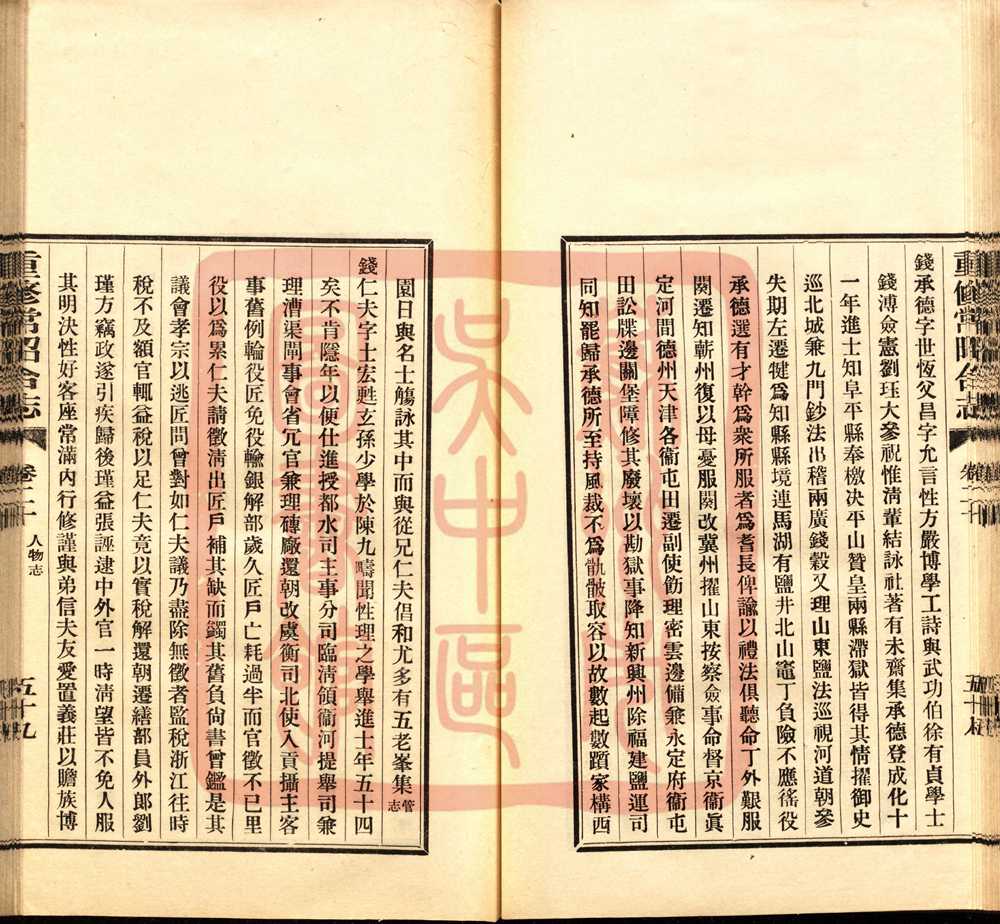 錢承德字世恆父昌字允言性方嚴博學工詩與武功伯徐有貞學士
錢溥僉憲劉珏大參祝惟淸輩結詠社著有未齋集承德登成化十
一年進士知阜平縣奉檄决平山贊皇兩縣滯獄皆得其情擢御史
巡北城兼九門鈔法出稽兩廣錢糓又理山東鹽法巡視河道朝參
失期左遷犍爲知縣縣境連馬湖有鹽井北山竈丁負險不應徭役
承德選有才幹爲衆所服者爲耆長俾諭以禮法俱聽命丁外艱服
闋遷知蘄州復以母憂服闋改冀州擢山東按察僉事命督京衞眞
定河間德州天津各衞屯田遷副使飭理密雲邊備兼永定府衞屯
田訟牒邊關堡障修其廢壞以勘獄事降知新興州除福建鹽運司
同知罷歸承德所至持風裁不爲骫骳取容以故數起數躓家構西
園日與名士觴詠其中而與從兄仁夫倡和尤多有五老峯集管志
錢仁夫字士宏甦玄孫少學於陳九疇聞性理之學舉進士年五十四
矣不肯隱年以便仕進授都水司主事分司臨淸領衞河提舉司兼
理漕渠閘事會省冗官兼理磚廠還朝改虞衡司北使入貢攝主客
事舊例輪役匠免役輸銀解部歲久匠戶亡耗過半而官徵不已里
役以爲累仁夫請徵淸出匠戶補其缺而蠲其舊負尙書曾鑑是其
議會孝宗以逃匠問曾對如仁夫議乃盡除無徵者監稅浙江往時
稅不及額官輒益稅以足仁夫竟以實稅解還朝遷繕部員外郞劉
瑾方竊政遂引疾歸後瑾益張誣逮中外官一時淸望皆不免人服
其明決性好客座常滿內行修謹與弟信夫友愛置義莊以贍族博
重修常昭合志
卷二十
人物志
五十九